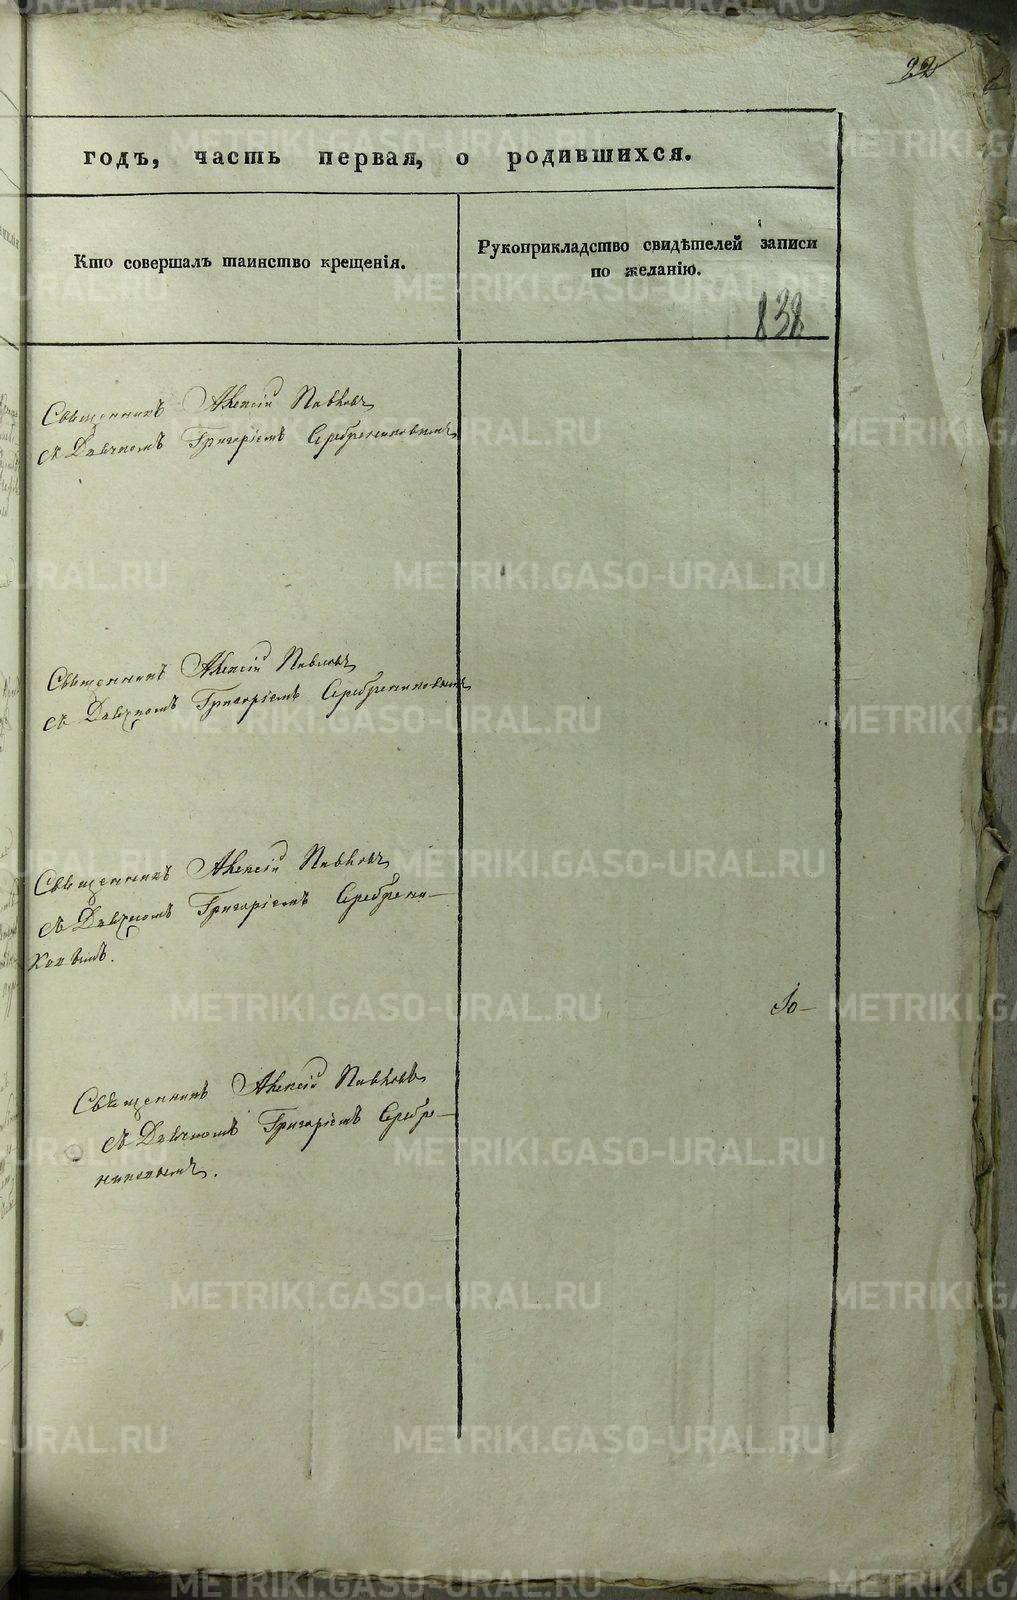 22
годъ, часть первая, о родившихся.
Кто совершалъ таинство крещенія.
Рукоприкладство свидѣтелей записи
по желанію.
838
Священникъ Алексій Павловъ
съ Дьячкомъ Григоріемъ Серебрениковымъ
Священникъ Алексій Павловъ
съ Дьячкомъ Григоріемъ Серебрениковымъ
Священникъ Алексій Павловъ
съ Дьячкомъ Григоріемъ Серебрени-
ковымъ.
Священникъ Алексій Павловъ
съ Дьячкомъ Григоріемъ Серебре-
никовымъ.
METRIKI.GASO-URAL.RU